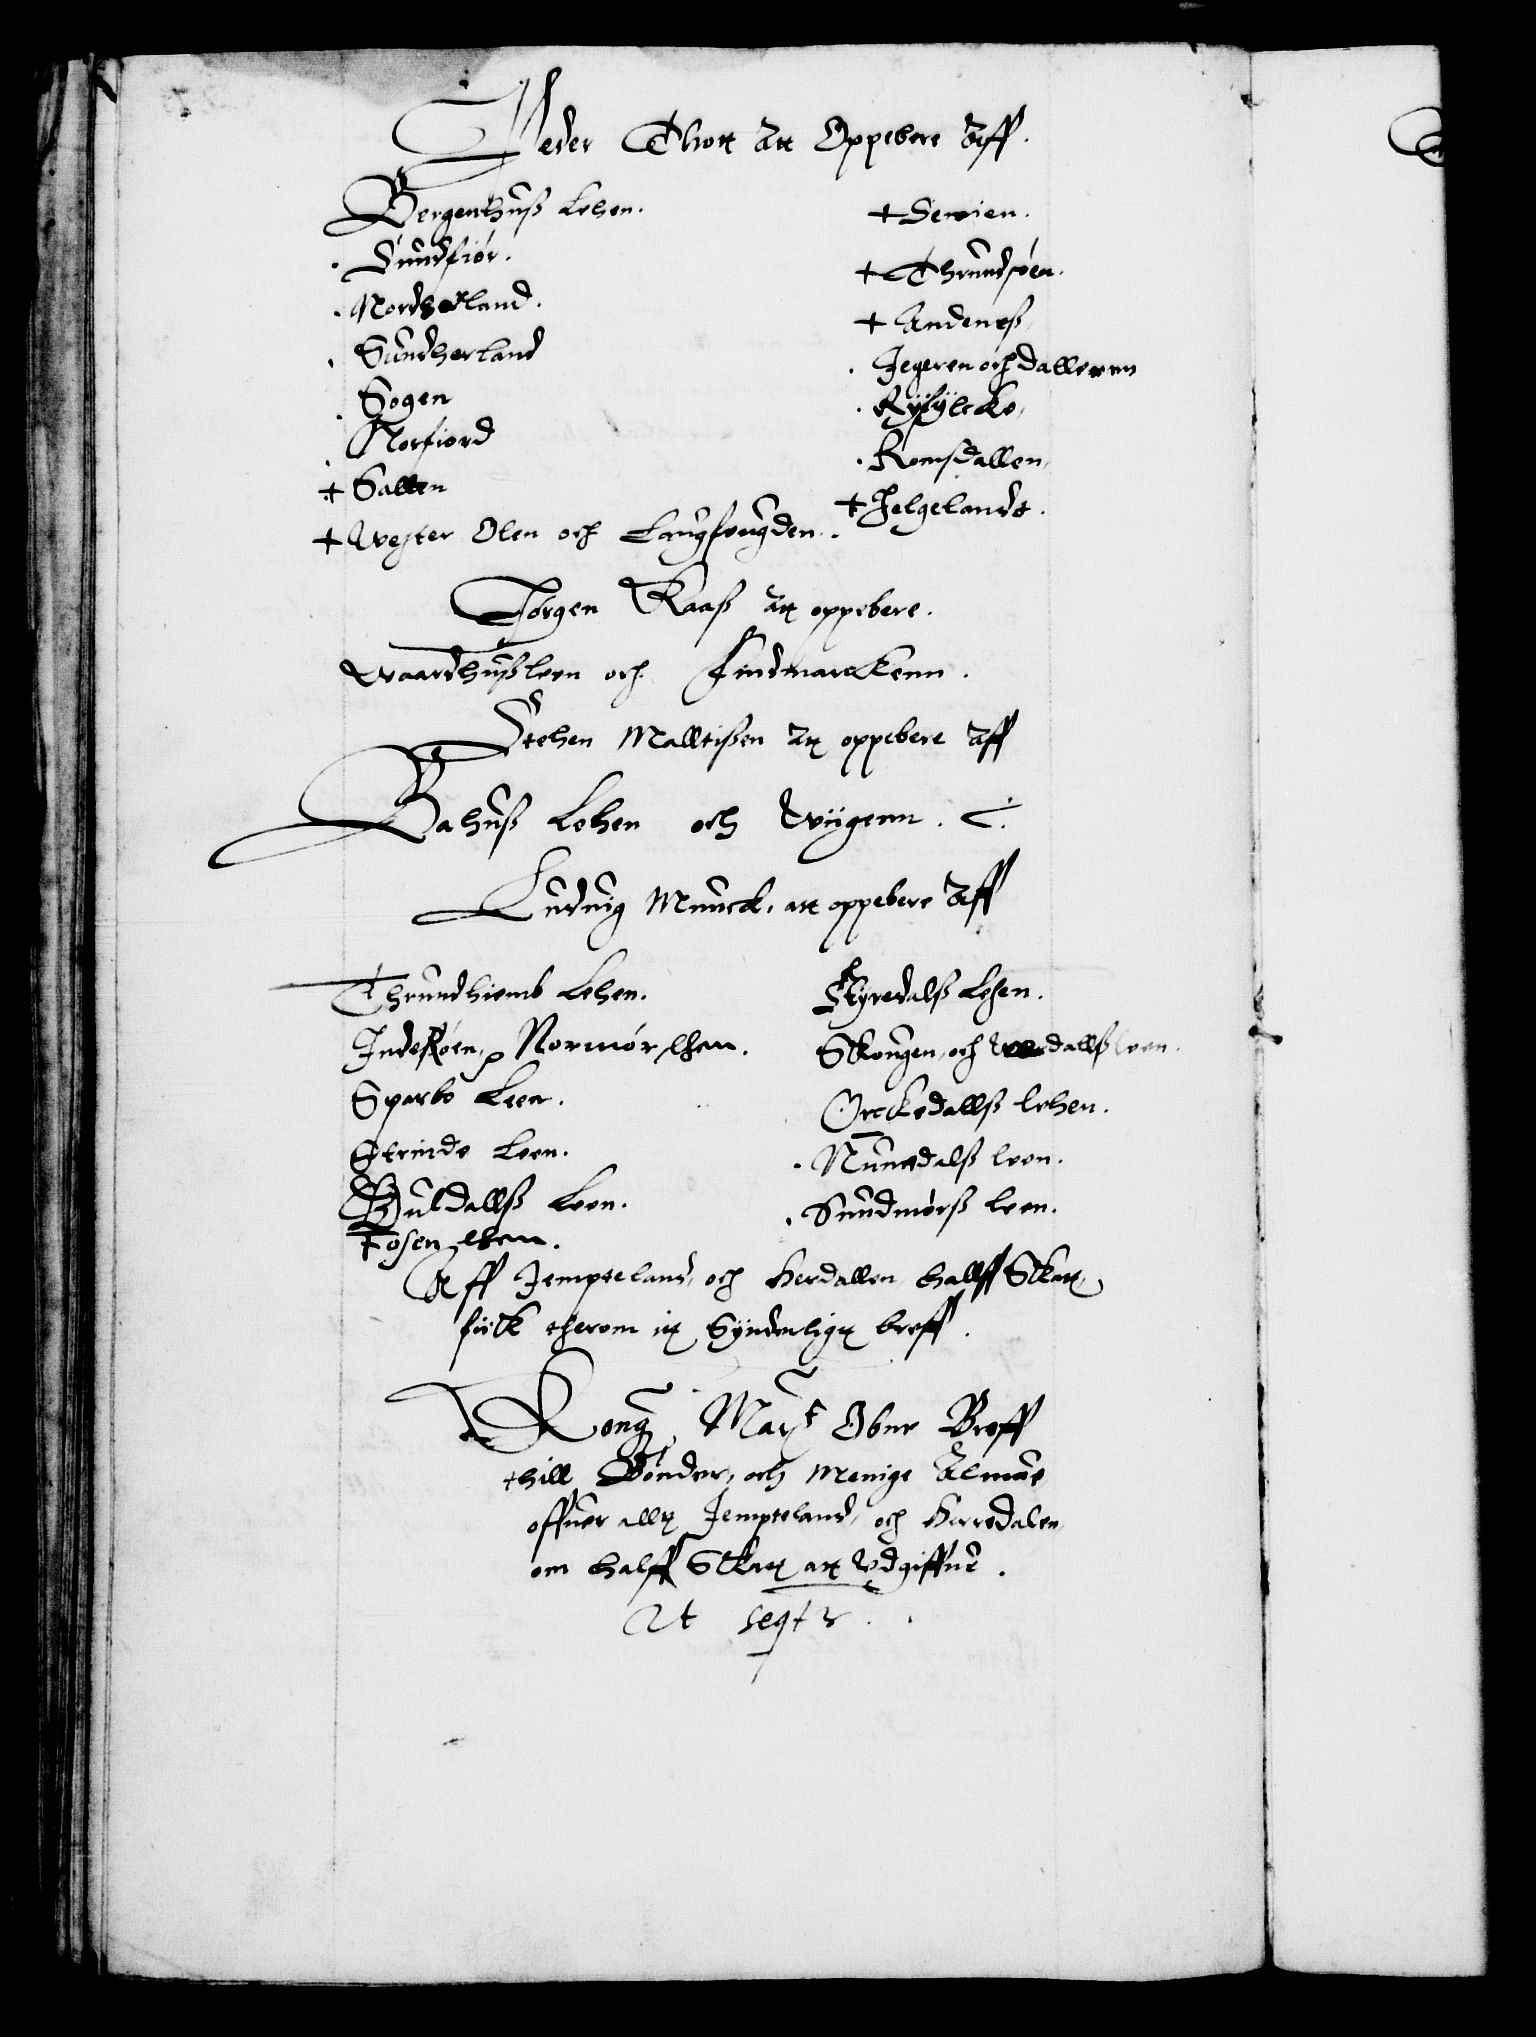 Peder Thott att Oppebere Aff.
Bergenhuß Lehen.
. Sundfiör.
. Nordherland.
. Sundherland
. Sogen
. Norfiord
+ Salten
+ Wester Olen och Langfougden.
+ Senien.
+ Thrundsöen.
+ Andeneß
. Jegeren och Dallernn
. Ryfylcke,
. Romsdallen,
+ Helgelandt.
Jörgen Kaaß att oppebere.
Waardhußleen och Findmarckenn.
Stehen Malltißen att oppebere Aff
Bahuß Lehen och Wiigenn.
Ludvig Munck, att oppebere Aff
Thrundhiemb Lehen.
Inderöen, Normör lhen.
Sparbo Leen.
Strinde Leen.
Guldallß Leen.
Fosen lhen.
Styredalß Lehen.
Skongen, och Werdallß leen.
Orckedallß lehen.
. Numedalß leen.
. Sundmörß leen.
Aff Jempteland, och Herdallen, hallff Skatt,
fiick therom itt Synderligtt breff.
Kong. Maytt Obne Breff
thill Bönder, och Menige Almue
offuer alltt Jempteland, och Herredalen,
om halff Skatt att Vdgiffue.
Ut seqtr.